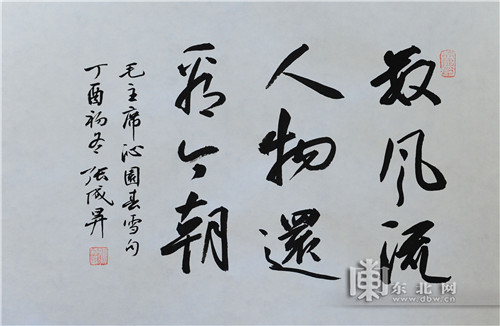 数风流
人物還
看今朝
毛主席沁園春雪句
丁酉初冬 张成昇
东北网
www.dbw.cn